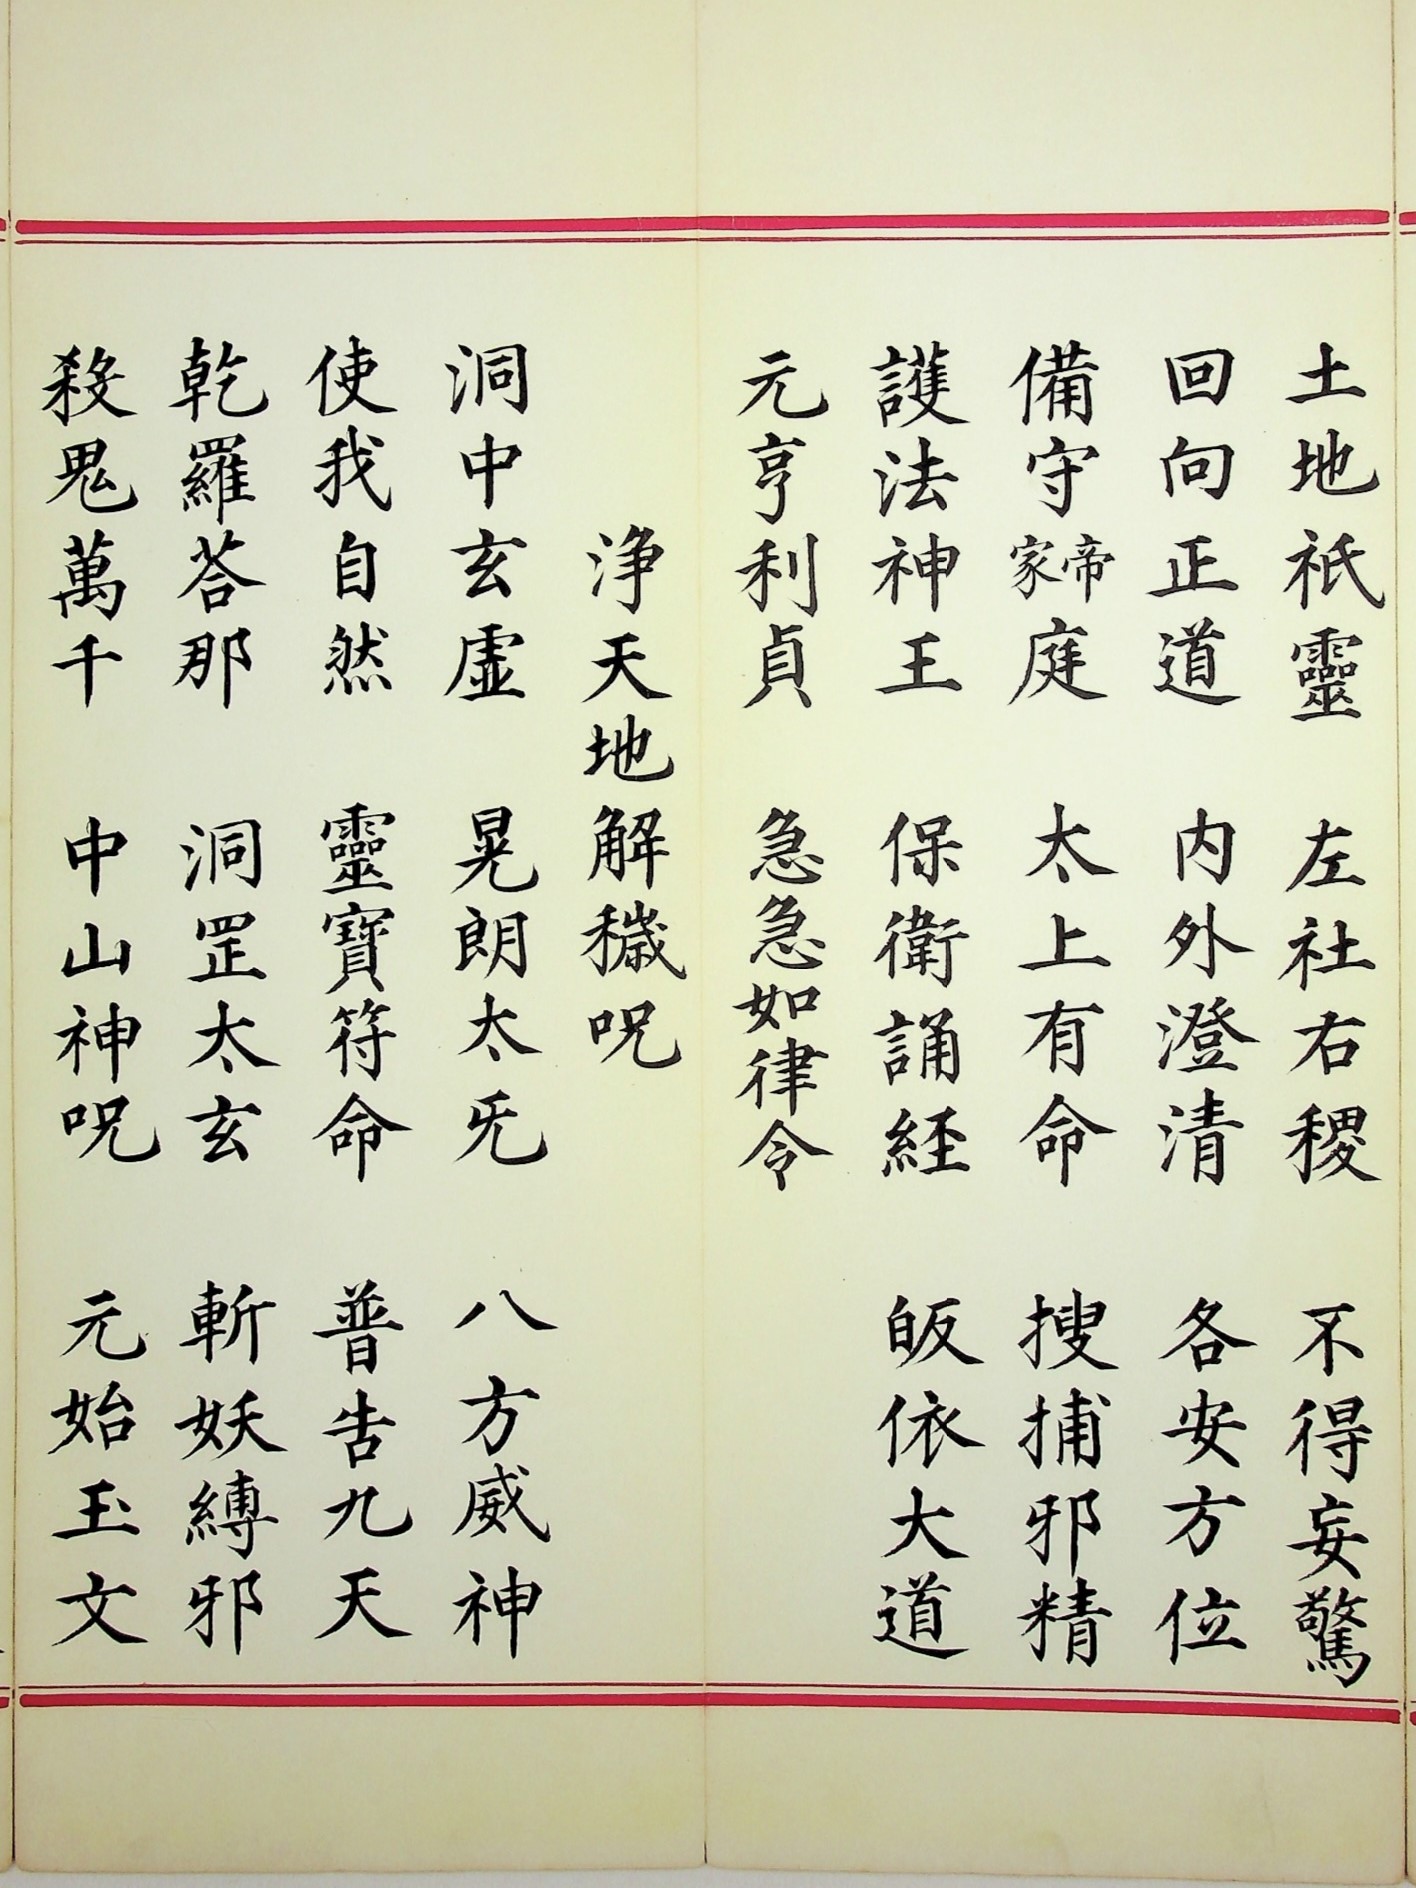 土地祇靈　左社右稷　不得妄驚
回向正道　内外澄清　各安方位
備守家帝庭　太上有命　搜捕邪精
護法神王　保衛誦経　皈依大道
元亨利貞　急急如律令
浄天地解穢呪
洞中玄虛　晃朗太旡　八方威神
使我自然　靈寶符命　普告九天
乾羅荅那　洞罡太玄　斬妖縛邪
殺鬼萬千　中山神呪　元始玉文